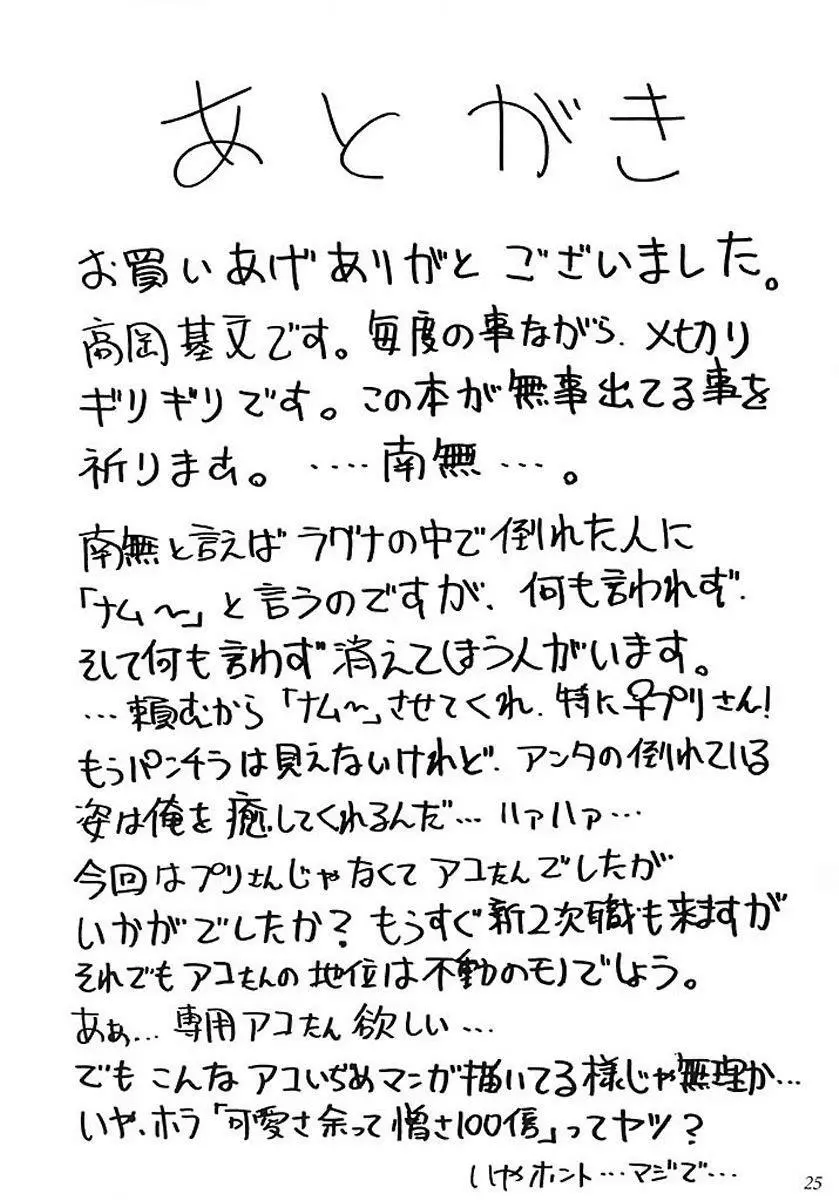 あとがき
お買いあげありがとございました。
高岡基文です。毎度の事ながら、〆切り
ギリギリです。この本が無事出てる事を
祈りますよ。‥‥南無‥‥。
南無と言えばラグナの中で倒れた人に
「ナム〜」と言うのですが、何も言われず、
そして何も言わず消えてしまう人がいます。
…頼むから「ナム〜」させてくれ、特に♀プリさん!
もうパンチラは見えないけれど、アンタの倒れている
姿は俺を癒してくれるんだ…ハァハァ…
今回はプリさんじゃなくてアコたんでしたが
いかがでしたか?もうすぐ新2次職も来ますが
それでもアコたんの地位は不動のモノでしょう。
あぁ…専用アコたん欲しい…
でもこんなアコいぢめマンガ描いてる様じゃ無理か…
いや、ホラ「可愛さ余って憎さ100倍」ってヤツ?
いやホント…マジで…
25